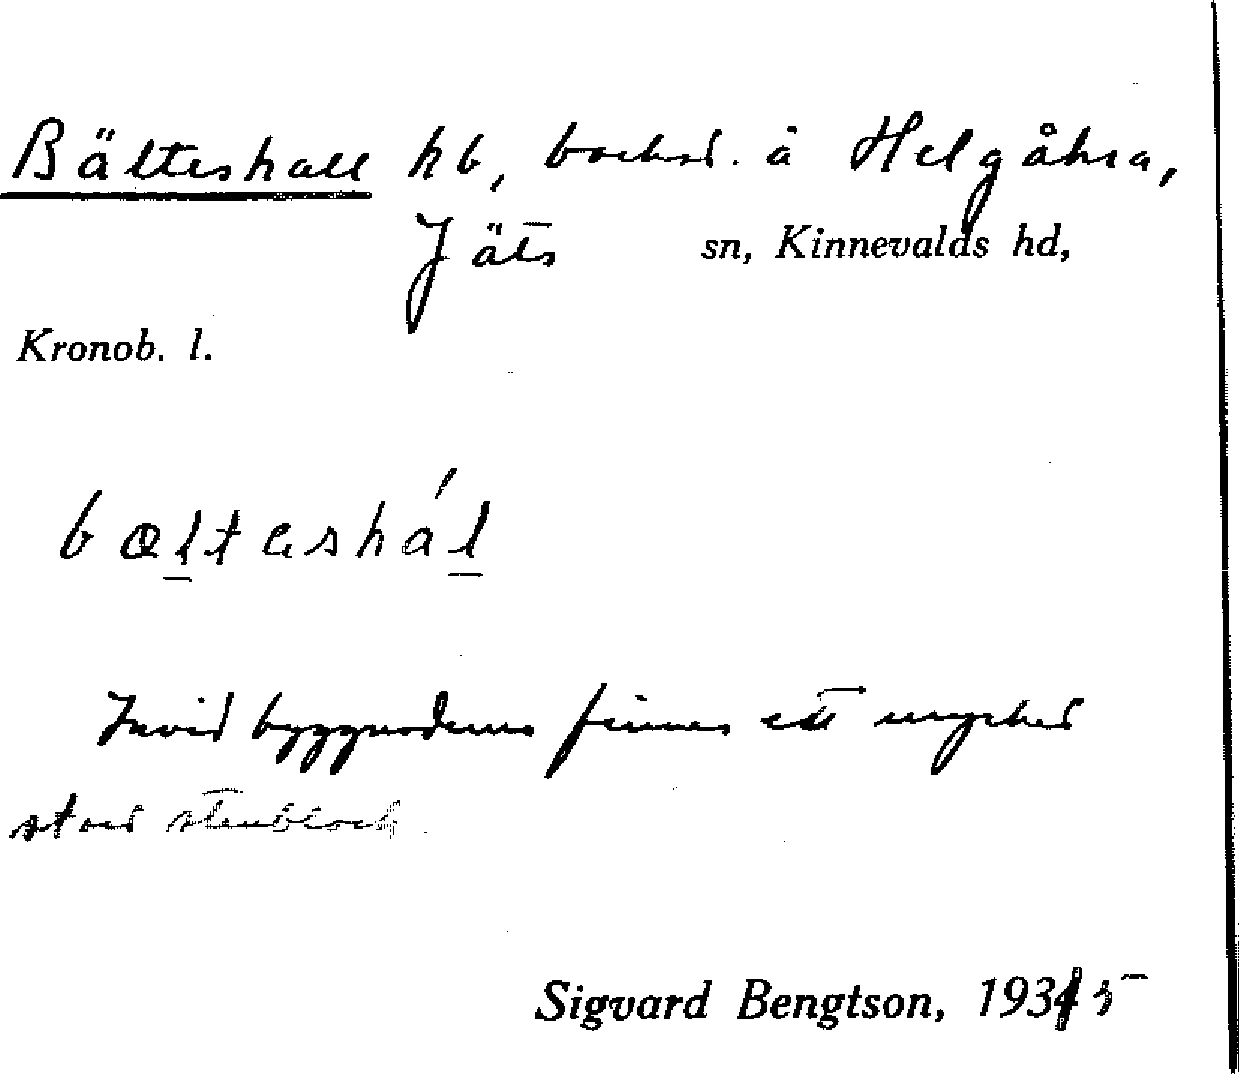 Bälteshall hb, backst. å Helgåkra,
Jäts sn, Kinnevalds hd,
Kronob. l.
bæltashál
Invid byggnaderna finnes ett mycket
stort stenblock.
Sigvard Bengtson, 1935